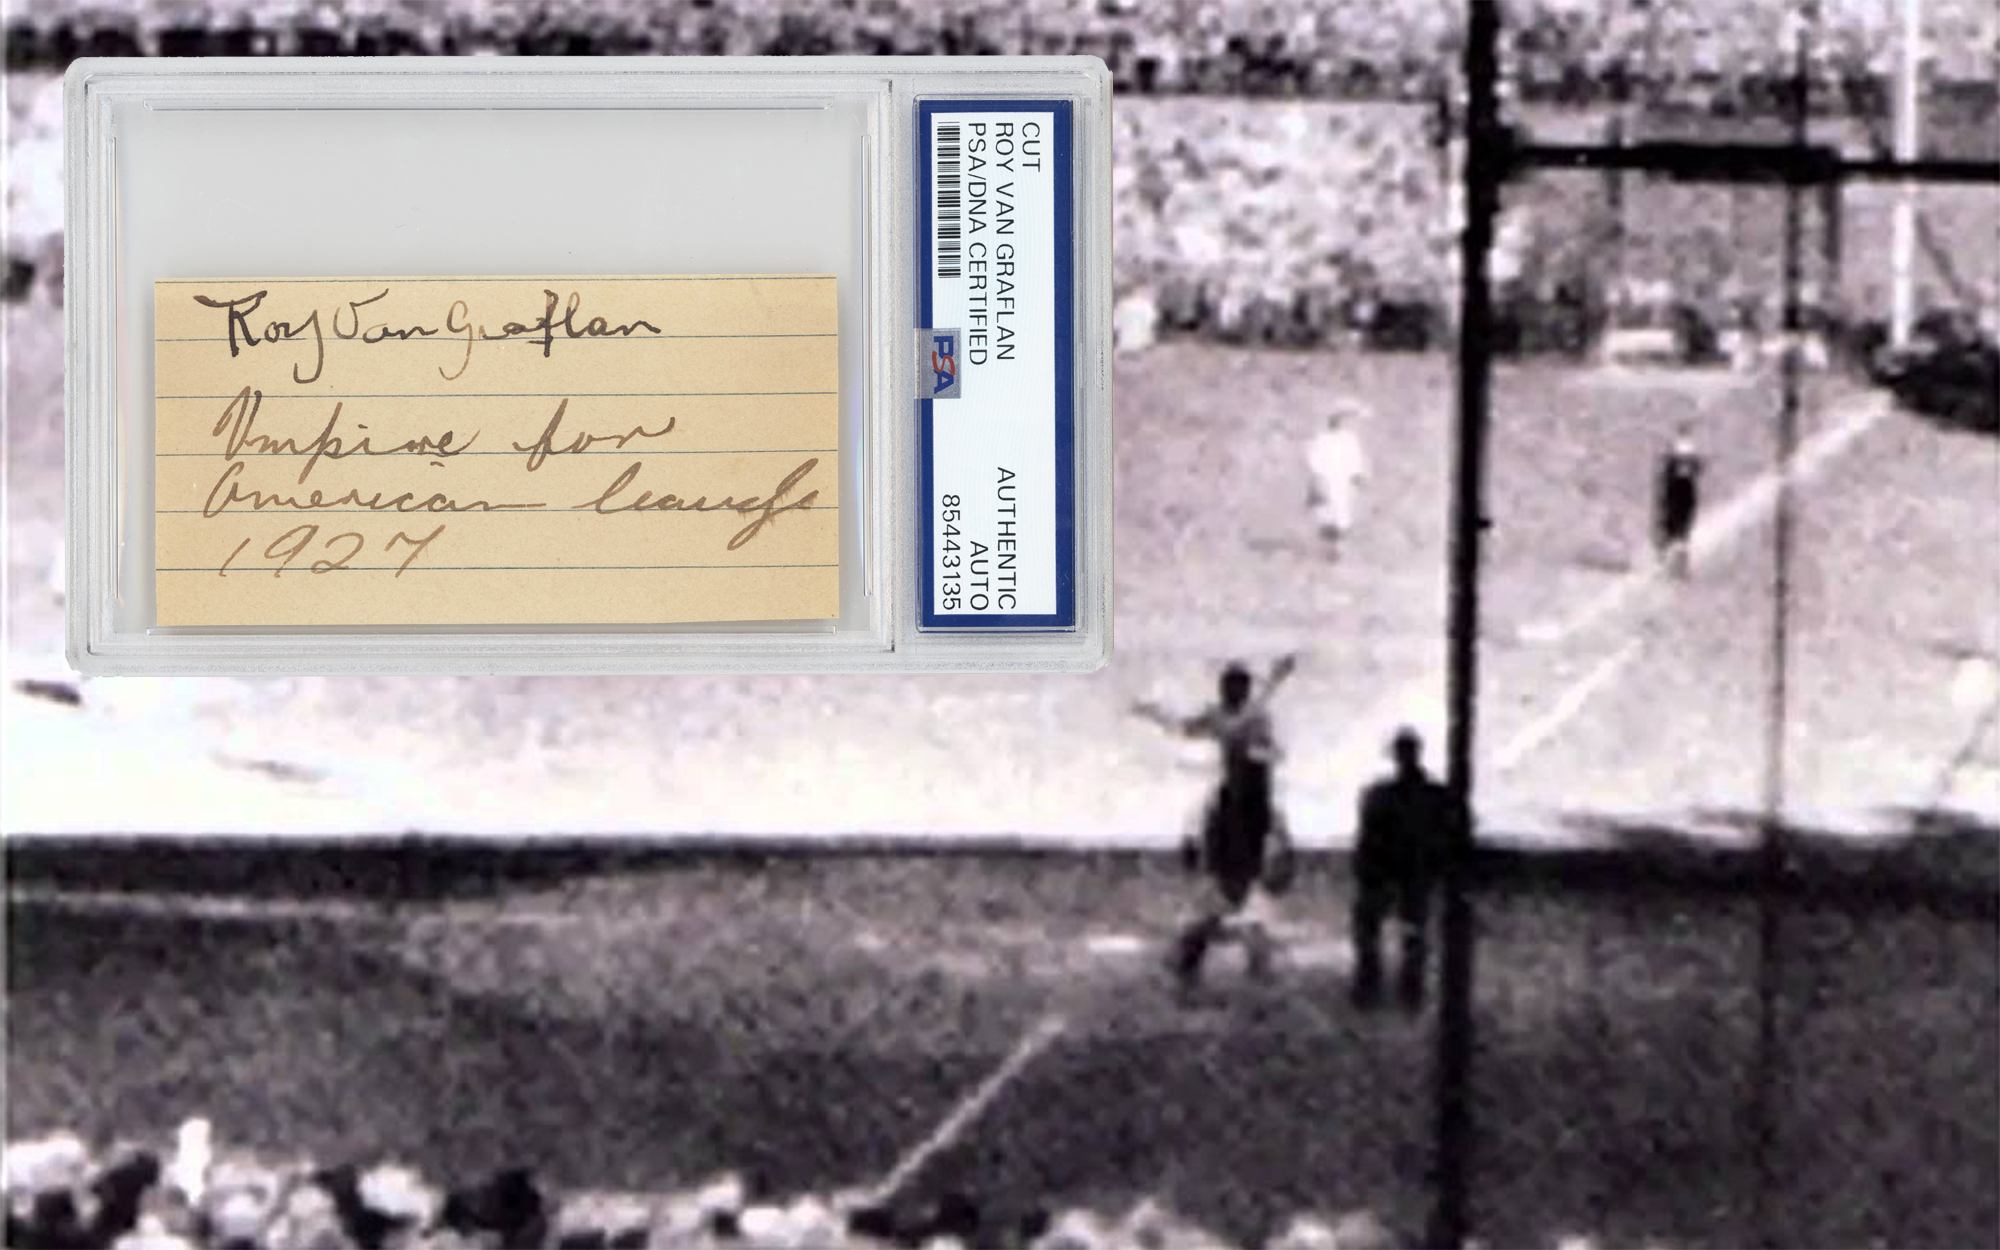 Roy Van Graflan
Umpire for
American League
1927
CUT
ROY VAN GRAFLAN AUTHENTIC
PSA/DNA CERTIFIED AUTO
85443135
PSA